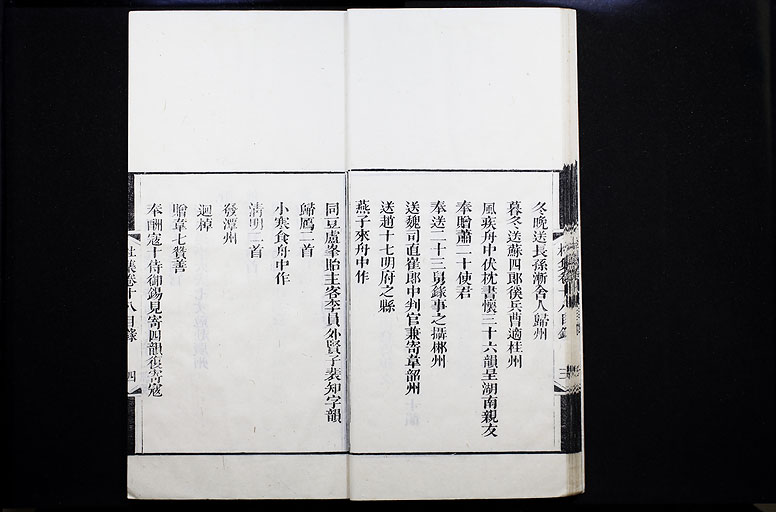 冬晚送長孫漸舍人歸州
暮冬送蘇四郎徯兵曹適桂州
風疾舟中伏枕書懷三十六韻呈湖南親友
奉贈蕭二十使君
奉送二十三舅錄事之攝郴州
送魏司直崔郎中判官兼寄韋韶州
送趙十七明府之縣
燕子來舟中作
同豆盧峯貽主客李員外賢子棐知字韻
歸鴈二首
小寒食舟中作
清明二首
發潭州
迴棹
贈韋七贊善
奉酬寇十侍御錫見寄四韻復寄寇
杜集卷十八目錄
四